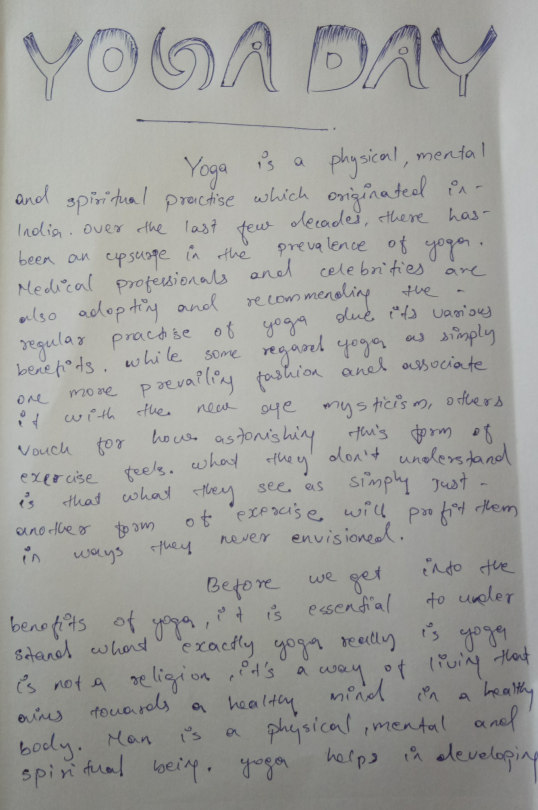 YOGA DAY
Yoga is a physical, mental
and spiritual practise which originated in-
India. over the last few decades, there has-
been an upsurge in the prevalence of yoga.
Medical professionals and celebrities are
also adopting and recommending the -
regular practise of yoga due its various
benefits. while some regard yoga as simply
one more prevailing fashion and associate
it with the new age mysticism, others
vouch for how astonishing this form of
exercise feels. what they don't understand
is that what they see as simply just -
another form of exercise will profit them
in ways they never envisioned.
Before we get into the
benefits of yoga, it is essential to under
stand what exactly yoga really is yoga
is not a religion, it's a way of living that
aims towards a healthy mind in a healthy
body. Man is a physical, mental and
spiritual being. yoga helps in developing